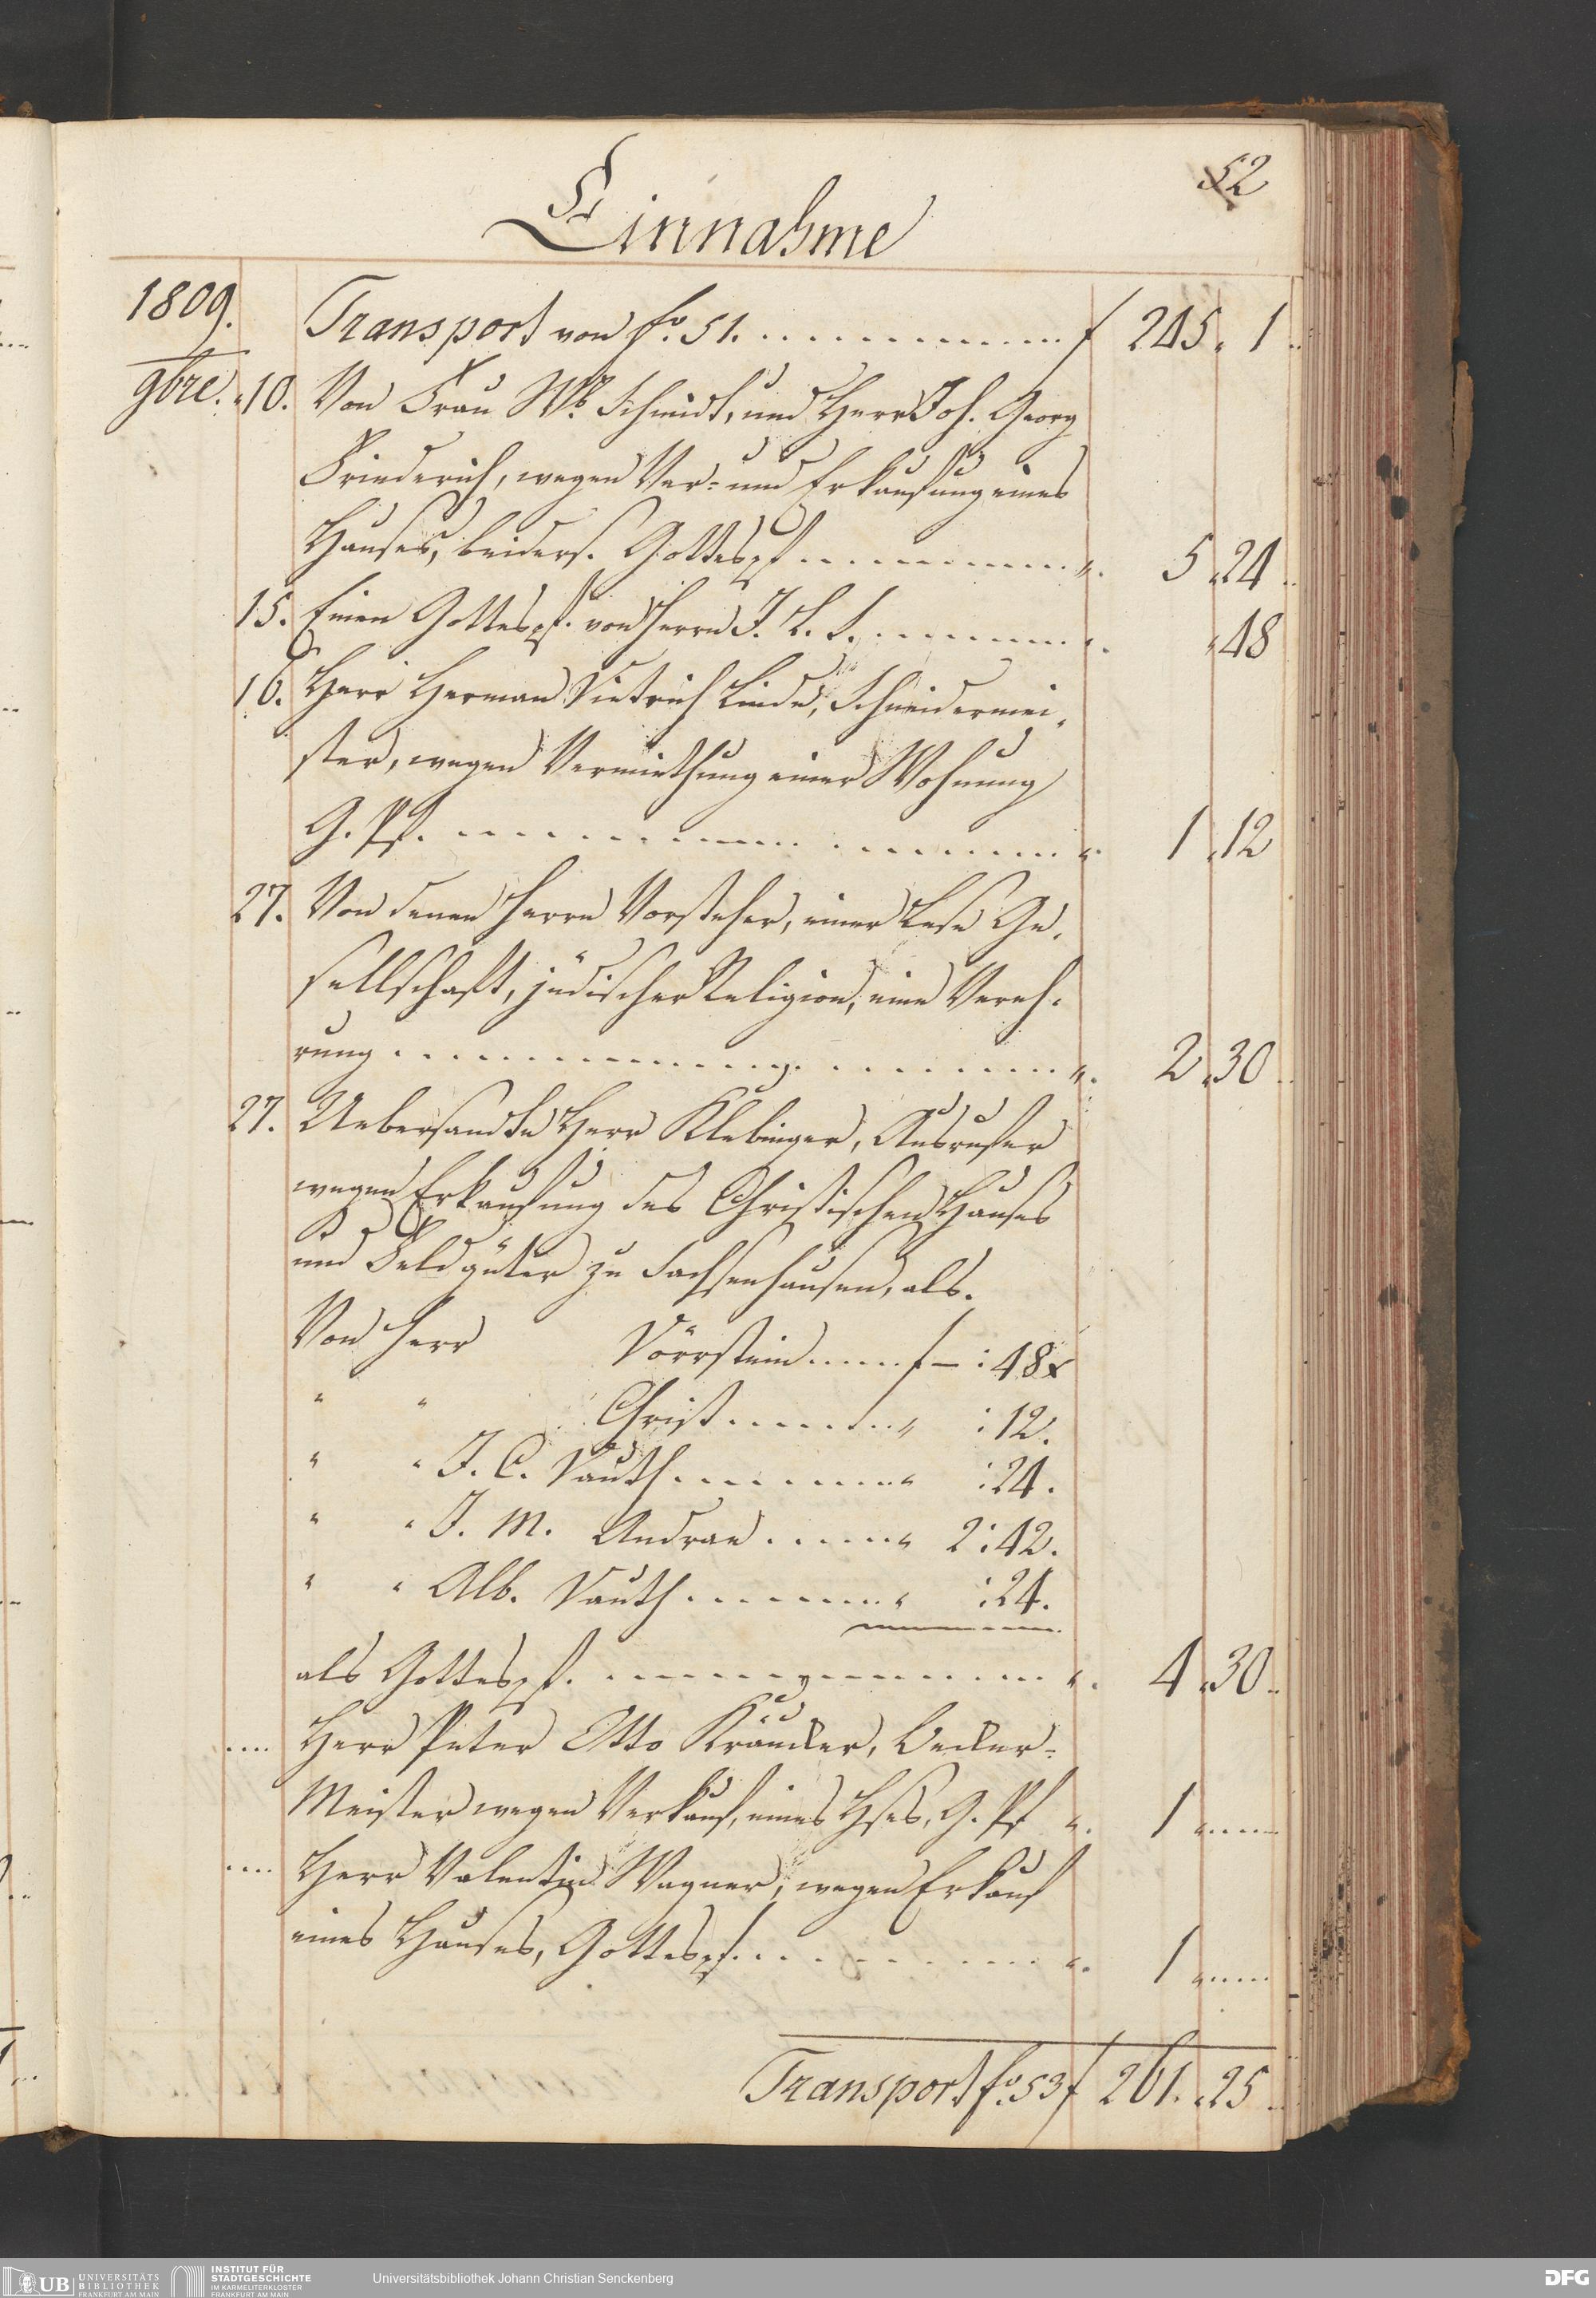 52
Einnahme
1809.
Transport von fo. 51. f 245. 1
9bre. 10. Von Frau Wb. Schmidt, und Herr Joh. Georg
Friederich, wegen Ver- und Erkaufung eines
Hauses, beiders. Gottespf. 5 24
15. Einen Gottespf. von Herrn J. L. S. 48
16. Herr Herman Dietrich Linde, Schneidermei-
ster, wegen Vermiethung einer Wohnung
G. Pf. 1 12
27. Von denen Herrn Vorsteher, einer Lese Ge-
sellschaft, jüdischer Religion, eine Vereh-
rung 2 30
27. Uebersandte Herr Klebinger, Ausrufer
wegen Erkaufung des Christischen Hauses
und Feldgüter zu Sachsenhausen, als.
Von Herr Dörrstein f — : 48 x
" " Christ " : 12.
" " J. C. Vauth " : 24.
" " J. M. Andrae " 2 : 42.
" " Alb. Vauth " : 24.
als Gottespf. 4 30
Herr Peter Otto Kräucker, Becker-
Meister wegen Verkauf, eines Hses, G. Pf 1
Herr Valentin Wagner, wegen Erkauf
eines Hauses, Gottespf. 1
Transport fo. 53 f 261. 25
UB UNIVERSITÄTS
BIBLIOTHEK
FRANKFURT AM MAIN
INSTITUT FÜR
STADTGESCHICHTE
IM KARMELITERKLOSTER
FRANKFURT AM MAIN
Universitätsbibliothek Johann Christian Senckenberg
DFG